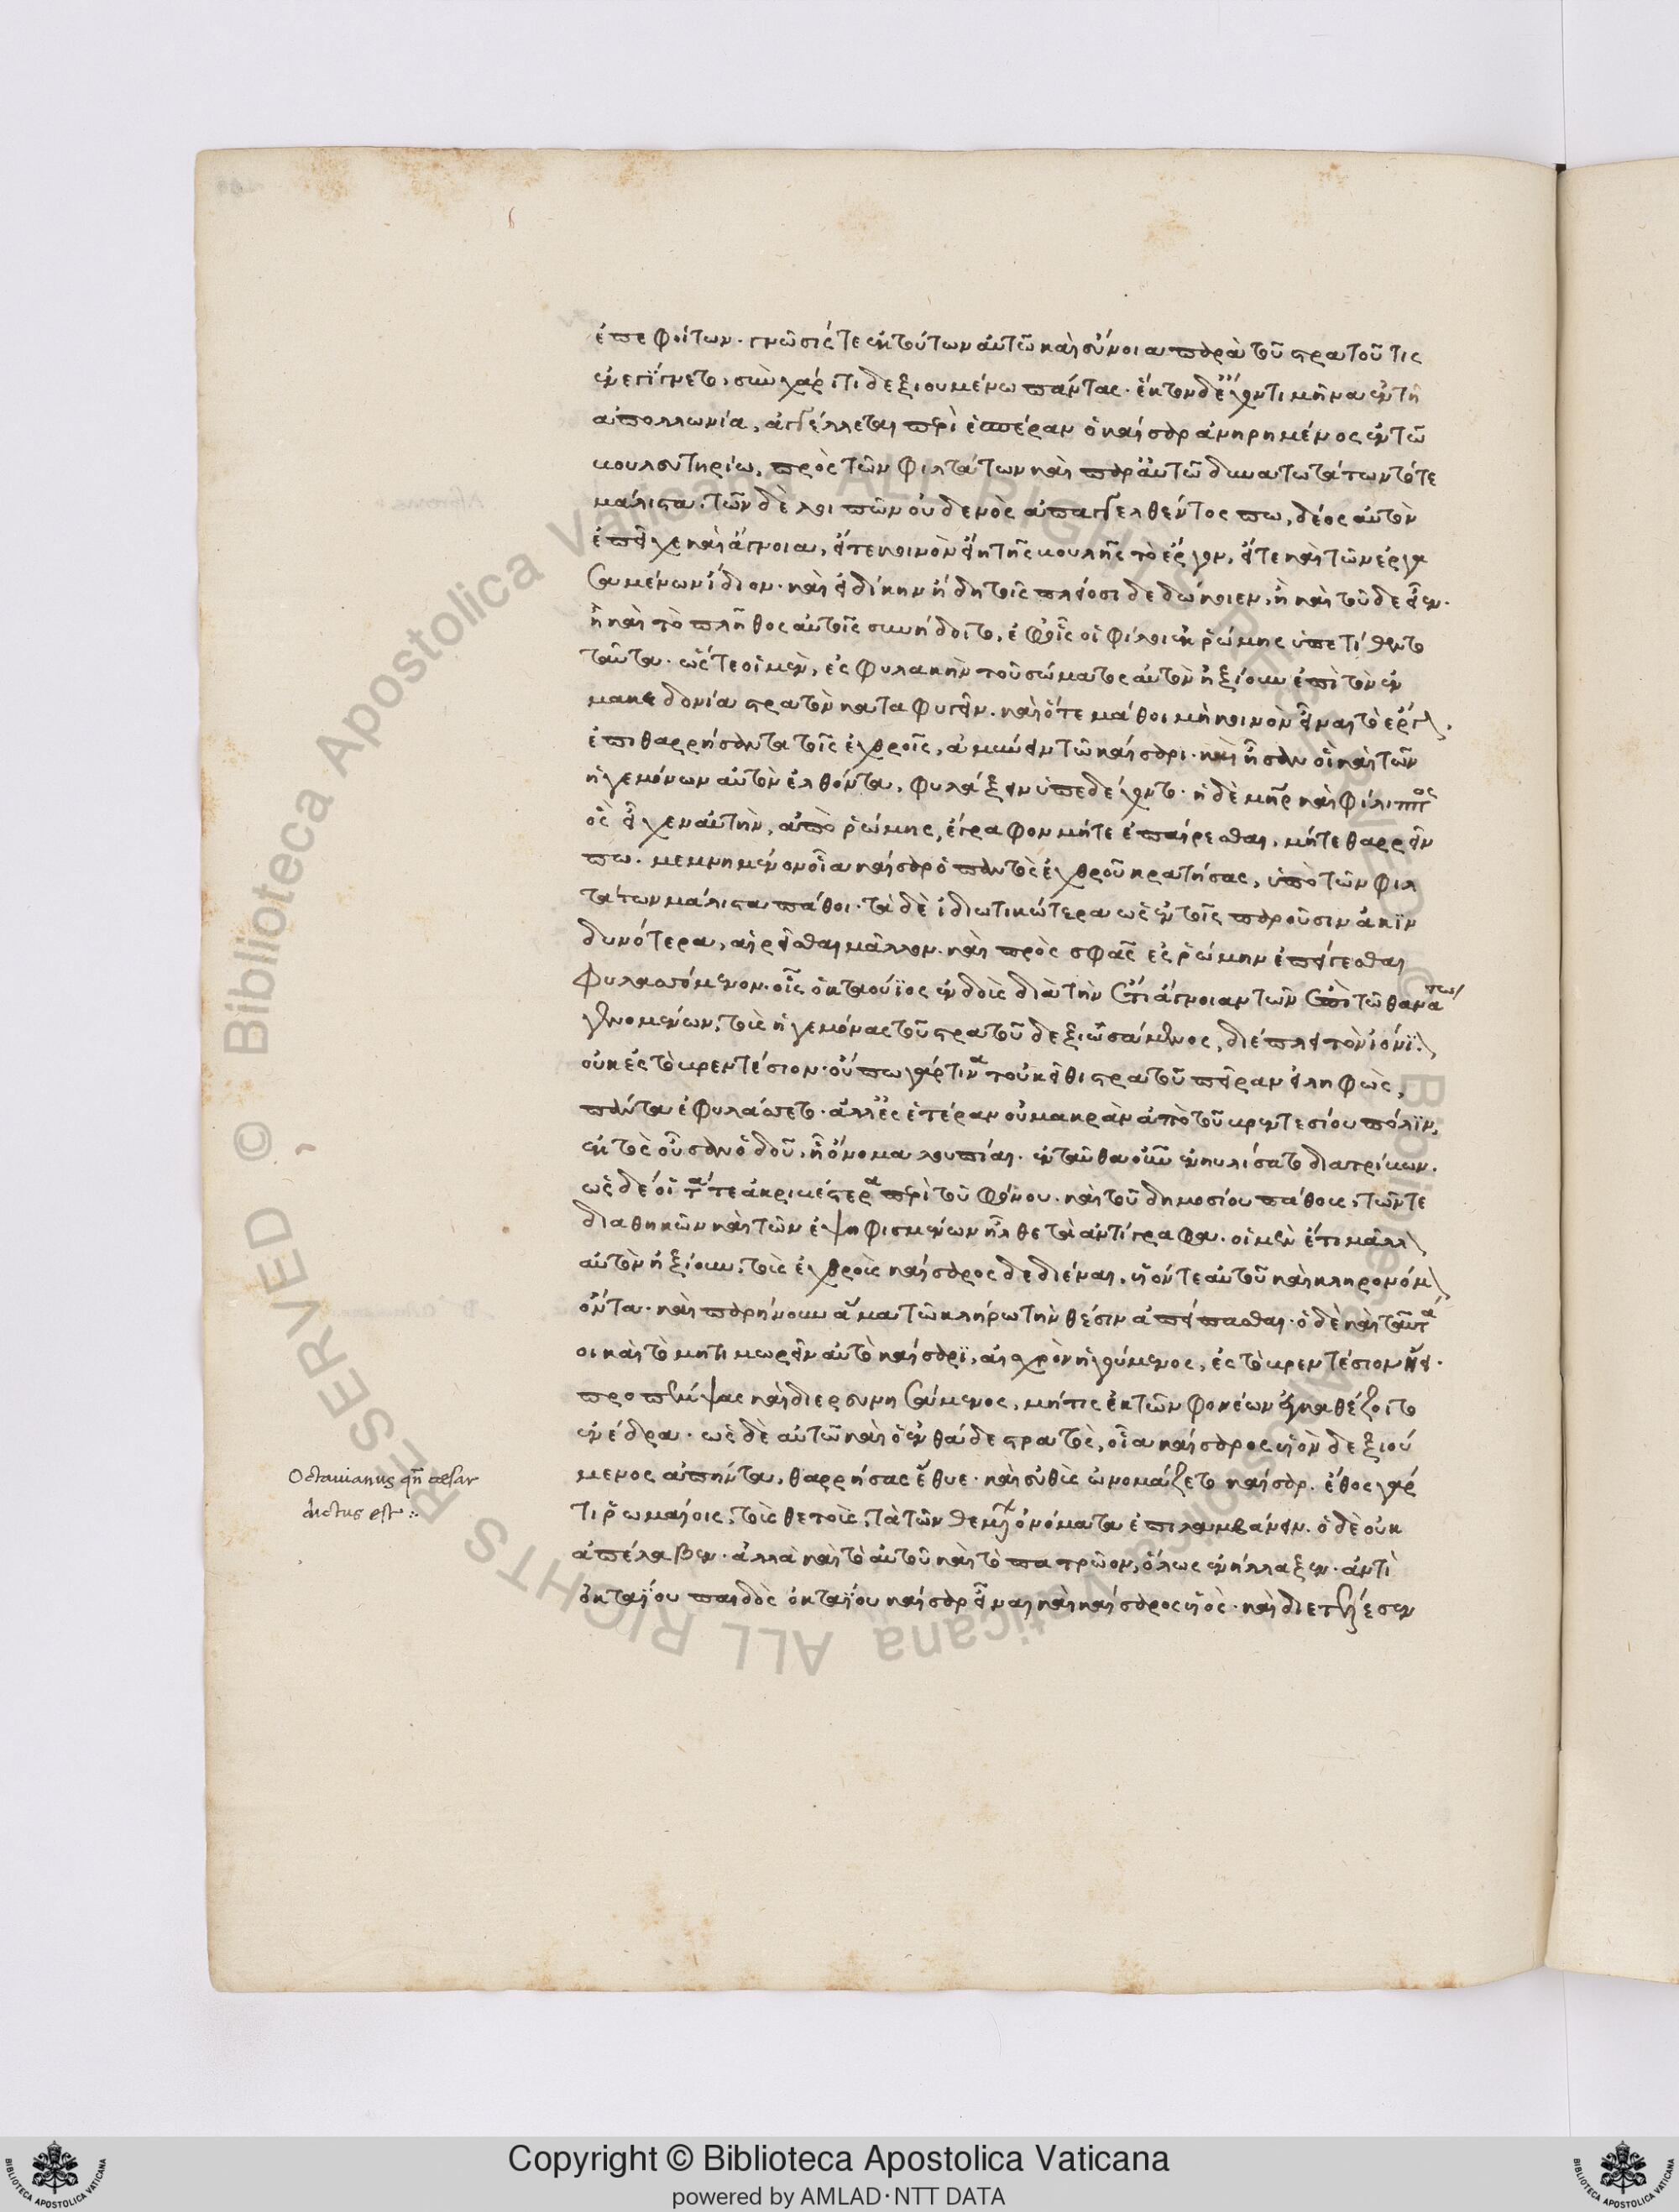 ἐπεφοίτων. γνῶσίς τε ἐκ τούτων αὐτῷ καὶ εὔνοια παρὰ τοῦ στρατοῦ τις
ἐνεγίγνετο, σὺν χάριτι δεξιουμένῳ πάντας. ἕκτον δ' ἔχοντι μῆνα ἐν τῇ
ἀπολλωνίᾳ, ἀγγέλλεται περὶ ἑσπέραν ὁ καῖσαρ ἀνῃρημένος ἐν τῷ
βουλευτηρίῳ, πρὸς τῶν φιλτάτων καὶ παρ' αὐτῷ δυνατωτάτων τότε
μάλιστα. τῶν δὲ λοιπῶν οὐδενὸς ἀπαγγελθέντος πω, δέος αὐτὸν
ἐπεῖχε καὶ ἄγνοια, εἴτε κοινὸν εἴη τῆς βουλῆς τὸ ἔργον, εἴτε καὶ τῶν ἐργα
σαμένων ἴδιον. καὶ εἰ δίκην ἤδη τοῖς πλείοσι δεδώκοιεν, ἢ καὶ τοῦδε εἶεν.
ἢ καὶ τὸ πλῆθος αὐτοῖς συνήδοιτο, ἐφ' οἷς οἱ φίλοι ἐκ ῥώμης ὑπετίθεντο
ταῦτα. ὥστε οἱ μὲν, ἐς φυλακὴν τοῦ σώματος αὐτὸν ἠξίουν ἐπὶ τὸν ἐν
μακεδονίᾳ στρατὸν καταφυγεῖν. καὶ ὅτε μάθοι μὴ κοινὸν εἶναι τὸ ἔργ
ἐπιθαρρήσαντα τοῖς ἐχθροῖς, ἀμύνειν τῷ καίσαρι. καὶ ἦσαν οἳ καὶ τῶν
ἡγεμόνων αὐτὸν ἐλθόντα, φυλάξειν ὑπεδέχοντο. ἡ δὲ μηρ καὶ φίλιππος
ὃς εἶχεν αὐτὴν, ἀπὸ ῥώμης, ἔγραφον μήτε ἐπαίρεσθαι, μήτε θαρρεῖν
πω. μεμνημένον οἷα καῖσαρ ὁ παντὸς ἐχθροῦ κρατήσας, ὑπὸ τῶν φιλ
τάτων μάλιστα πάθοι. τὰ δὲ ἰδιωτικώτερα ὡς ἐν τοῖς παροῦσιν ἀκϊν
δυνότερα, αἱρεῖσθαι μᾶλλον. καὶ πρὸς σφᾶς ἐς ῥώμην ἐπείγεσθαι
φυλασσόμενον. οἷς ὀκταούϊος ἐνδοὺς διὰ τὴν ἔτι ἄγνοιαν τῶν ἐπὶ τῷ θανάτῳ
γενομένων, τοὺς ἡγεμόνας τοῦ στρατοῦ δεξιωσάμενος, διέπλει τὸν ἰόνϊ.
οὐκ ἐς τὸ βρεντέσιον. οὔπω γάρ τινα τοῦ κεῖθι στρατοῦ πεῖραν εἰληφὼς,
πάντα ἐφυλάσσετο. ἀλλ' ἐς ἑτέραν οὐ μακρὰν ἀπὸ τοῦ βρεντεσίου πόλϊν,
ἐκτὸς οὖσαν ὁδοῦ, ᾗ ὄνομα λουπίαι. ἐνταῦθα οὖν ἐνηυλίσατο διατρίβων.
ὡς δέ οἱ τά τε ἀκριβέστερα περὶ τοῦ φόνου. καὶ τοῦ δημοσίου πάθους, τῶν τε
διαθηκῶν καὶ τῶν ἐψηφισμένων ἦλθε τὰ ἀντίγραφα. οἱ μὲν ἔτι μᾶλλ
αὐτὸν ἠξίουν, τοὺς ἐχθροὺς καίσαρος δεδιέναι, υἱόν τε αὐτοῦ καὶ κληρονόμ
ὄντα. καὶ παρῄνουν ἅμα τῷ κλήρῳ τὴν θέσιν ἀπείπασθαι. ὁ δὲ καὶ ταῦτά
οι καὶ τὸ μὴ τιμωρεῖν αὐτὸ καίσαρϊ, αἰσχρὸν ἡγούμενος, ἐς τὸ βρεντέσιον ᾔει.
προπέμψας καὶ διερευνησάμενος, μή τις ἐκ τῶν φονέων ἐγκαθέζοιτο
ἐνέδρα. ὡς δὲ αὐτῷ καὶ ὁ ἐνθάδε στρατὸς, οἷα καίσαρος υἱὸν δεξιού
μενος ἀπήντα, θαρρήσας ἔθυε. καὶ εὐθὺς ὠνομάζετο καῖσαρ. ἔθος γάρ
τι ῥωμαίοις, τοὺς θετοὺς, τὰ τῶν θεμέν ὀνόματα ἐπιλαμβάνειν. ὁ δὲ οὐκ
ἀπέλαβεν. ἀλλὰ καὶ τὸ αὐτοῦ καὶ τὸ πατρῷον, ὅλως ἐνήλλαξεν. ἀντὶ
ὀκταΐου παιδὸς ὀκταΐου καῖσαρ εἶναι καὶ καίσαρος υἱός. καὶ διετέλεσεν
Octauianus qn̄ cæsar
dictus est :.
Copyright © Biblioteca Apostolica Vaticana
powered by AMLAD·NTT DATA